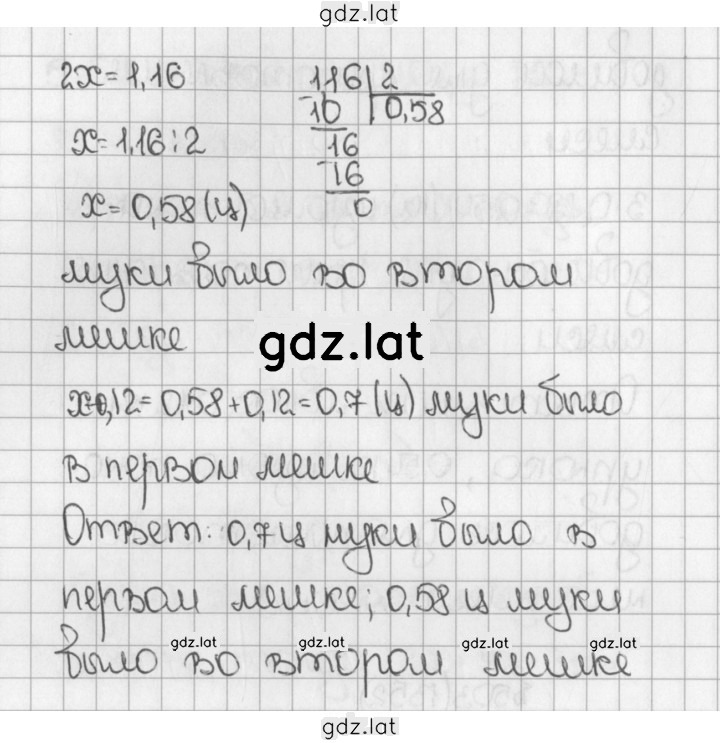 gdz.lat
2x=1,16
116 2
10 0,58
x=1,16:2
16
16
x=0,58(ц)
0
муки было во втором
мешке
gdz.lat
x+0,12=0,58+0,12=0,7(ц) муки было
в первом мешке
Ответ: 0,7ц муки было в
первом мешке; 0,58 ц муки
gdz.lat gdz.lat gdz.lat gdz.lat
было во втором мешке
gdz.lat